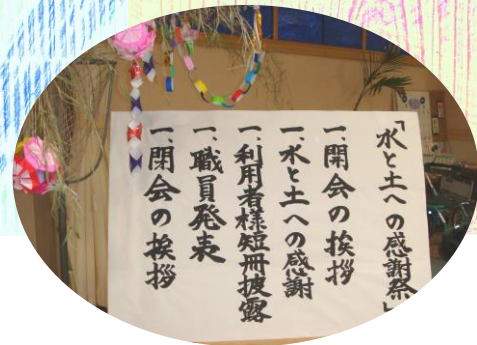 「水と土への感謝祭」
一、開会の挨拶
一、水と土への感謝
一、利用者様短冊披露
一、職員発表
一、閉会の挨拶